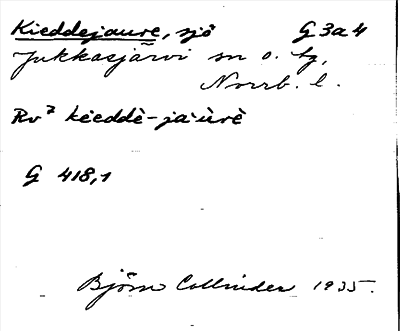 Kieddejaure, sjö G 3a4
Jukkasjärvi sn o. tg,
Norrb. l.
Rv⁷ kieddè-ja·ùrè
G 418,1
Björn Collinder 1935.